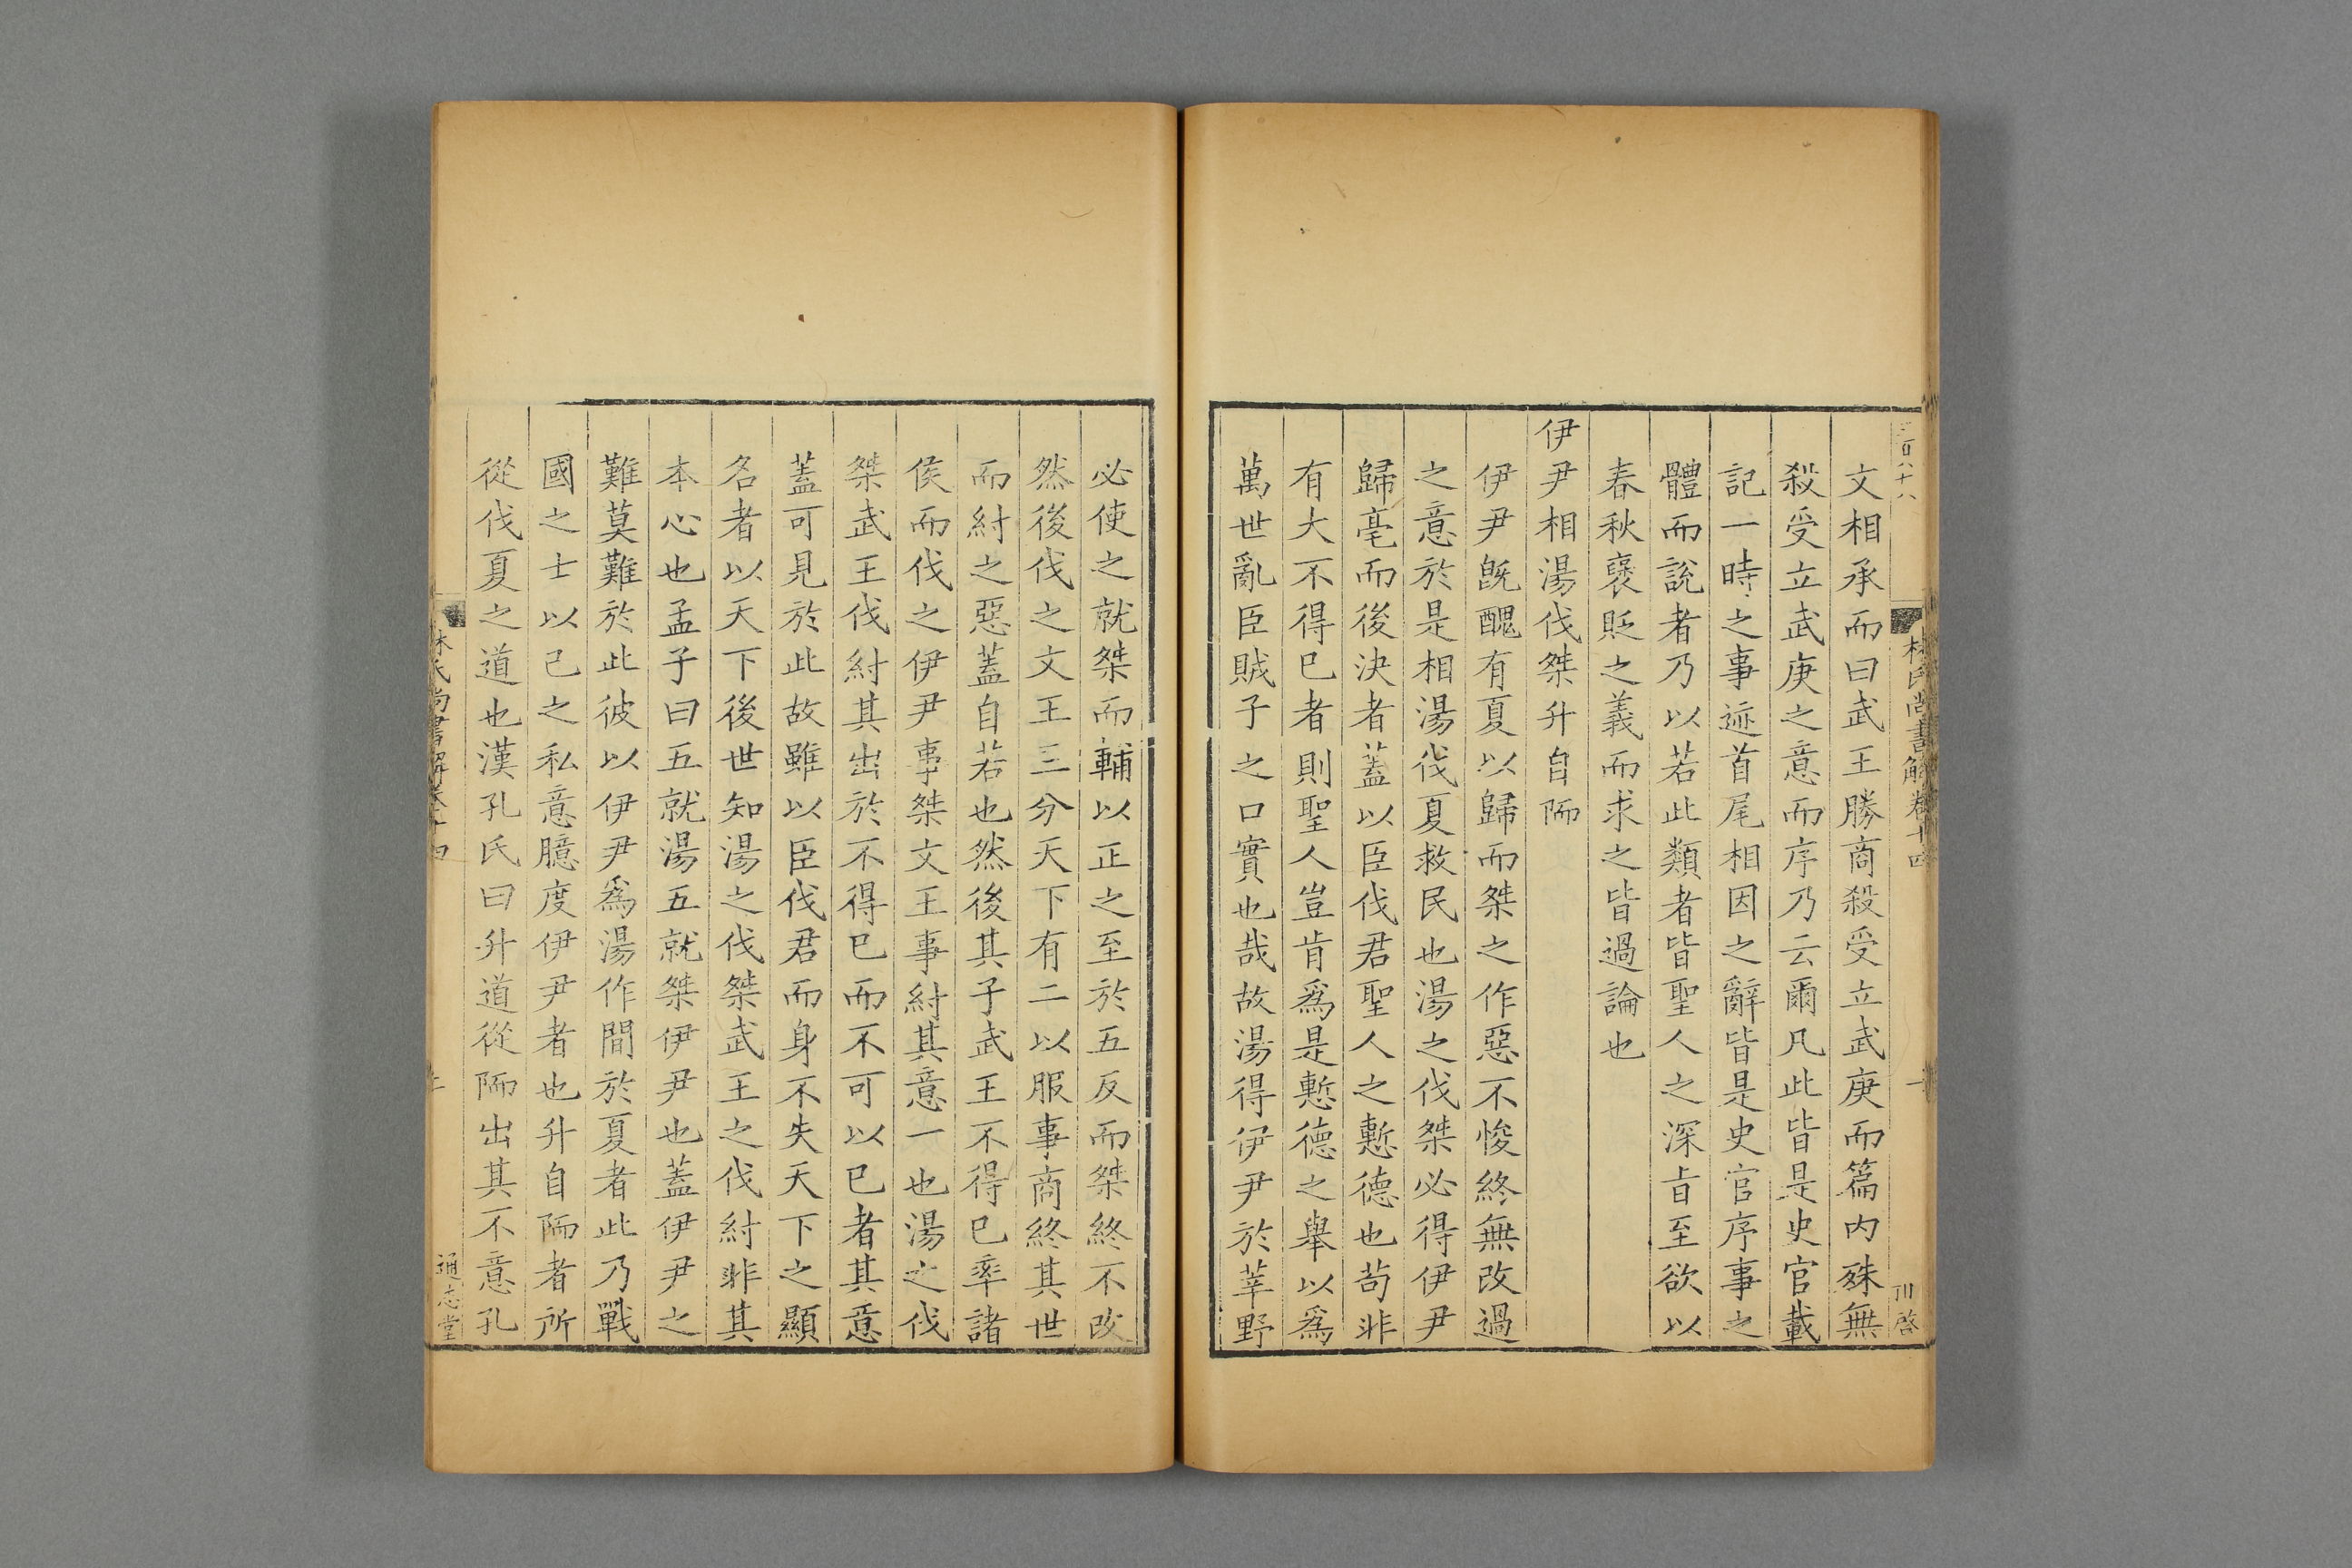 三百八十八
林氏尚書解卷十四
文相承而曰武王勝商殺受立武庚而篇内殊無
殺受立武庚之意而序乃云爾凡此皆是史官載
記一時之事迹首尾相因之辭皆是史官序事之
體而說者乃以若此類者皆聖人之深旨至欲以
春秋褒貶之義而求之皆過論也
伊尹相湯伐桀升自陑
伊尹旣醜有夏以歸而桀之作惡不悛終無改過
之意於是相湯伐夏救民也湯之伐桀必得伊尹
歸亳而後決者蓋以臣伐君聖人之慙德也苟非
有大不得已者則聖人豈肯爲是慙德之舉以爲
萬世亂臣賊子之口實也哉故湯得伊尹於莘野
必使之就桀而輔以正之至於五反而桀終不改
然後伐之文王三分天下有二以服事商終其世
而紂之惡蓋自若也然後其子武王不得已率諸
侯而伐之伊尹事桀文王事紂其意一也湯之伐
桀武王伐紂其出於不得已而不可以已者其意
蓋可見於此故雖以臣伐君而身不失天下之顯
名者以天下後世知湯之伐桀武王之伐紂非其
本心也孟子曰五就湯五就桀伊尹也蓋伊尹之
難莫難於此彼以伊尹爲湯作間於夏者此乃戰
國之士以己之私意臆度伊尹者也升自陑者所
從伐夏之道也漢孔氏曰升道從陑出其不意孔
林氏尚書解卷十四
通志堂